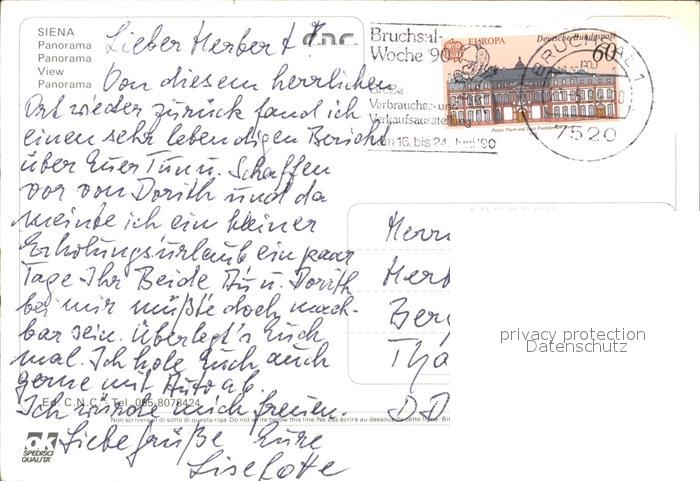 SIENA
Panorama
Panorama
View
Panorama
cnc
Lieber Herbert!
Von diesem herrlichen
Ort wieder zurück fand ich
einen sehr lebendigen Bericht
über Euer Tun u. Schaffen
vor von Dorith und da
meinte ich ein kleiner
Erholungsurlaub ein paar
Tage Ihr Beide Du u. Dorith
bei mir müßte doch mach-
bar sein. Überlegt's Euch
mal. Ich hole Euch auch
gerne mit Auto ab.
Ich würde mich freuen.
Liebe Grüße Eure
Liselotte
Bruchsal-
Woche '90
Große
Verbraucher- und
Verkaufsausstellung
vom 16. bis 24. Juni '90
EUROPA
Deutsche Bundespost
60
BRUCHSAL 1
7520
Herrn
privacy protection
Datenschutz
Ed. C.N.C. - Tel. 055-8078424
Non scrivere al di sotto di questa riga - Do not write below this line - Ne pas écrire au dessous de cette ligne
ok
SPEDISCI
QUALITA'